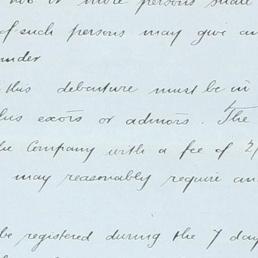 or more persons
of such persons may give an
under
this debenture must be in
his exors or admors. The
the Company with a fee of 2/
may reasonably require an
be registered during the 7 day